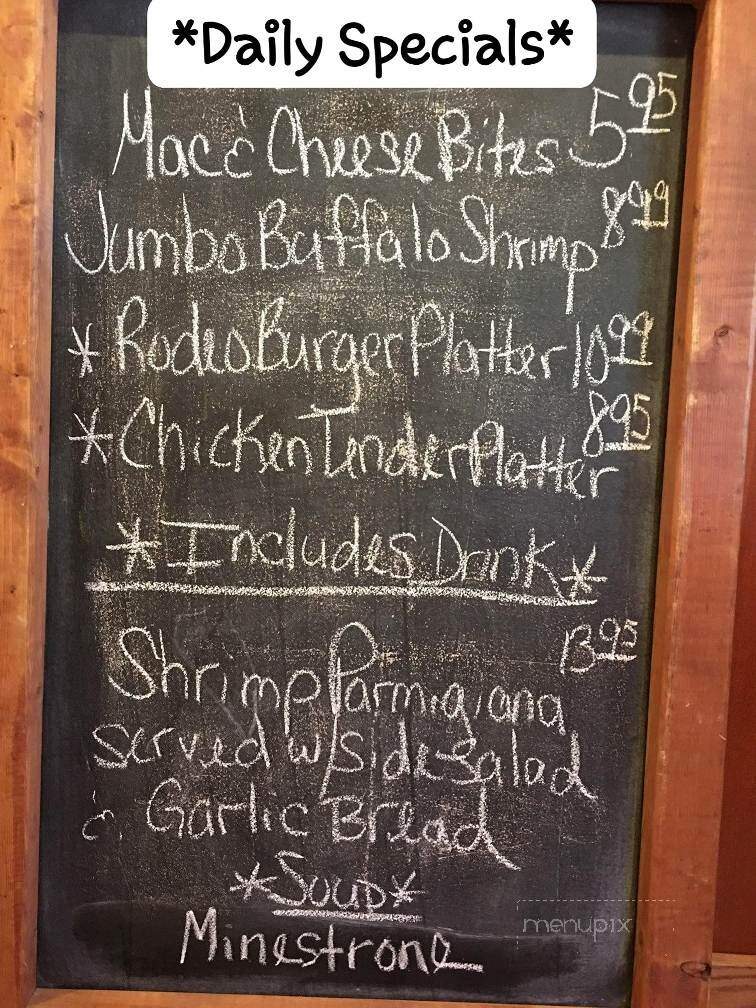 *Daily Specials*
Mac & Cheese Bites 5.95
Jumbo Buffalo Shrimp 8.99
* Rodeo Burger Platter 10.99
* Chicken Tender Platter 8.95
*Includes Drink*
Shrimp Parmigiana 13.95
served w/ Side Salad
& Garlic Bread
*Soup*
Minestrone
menupix